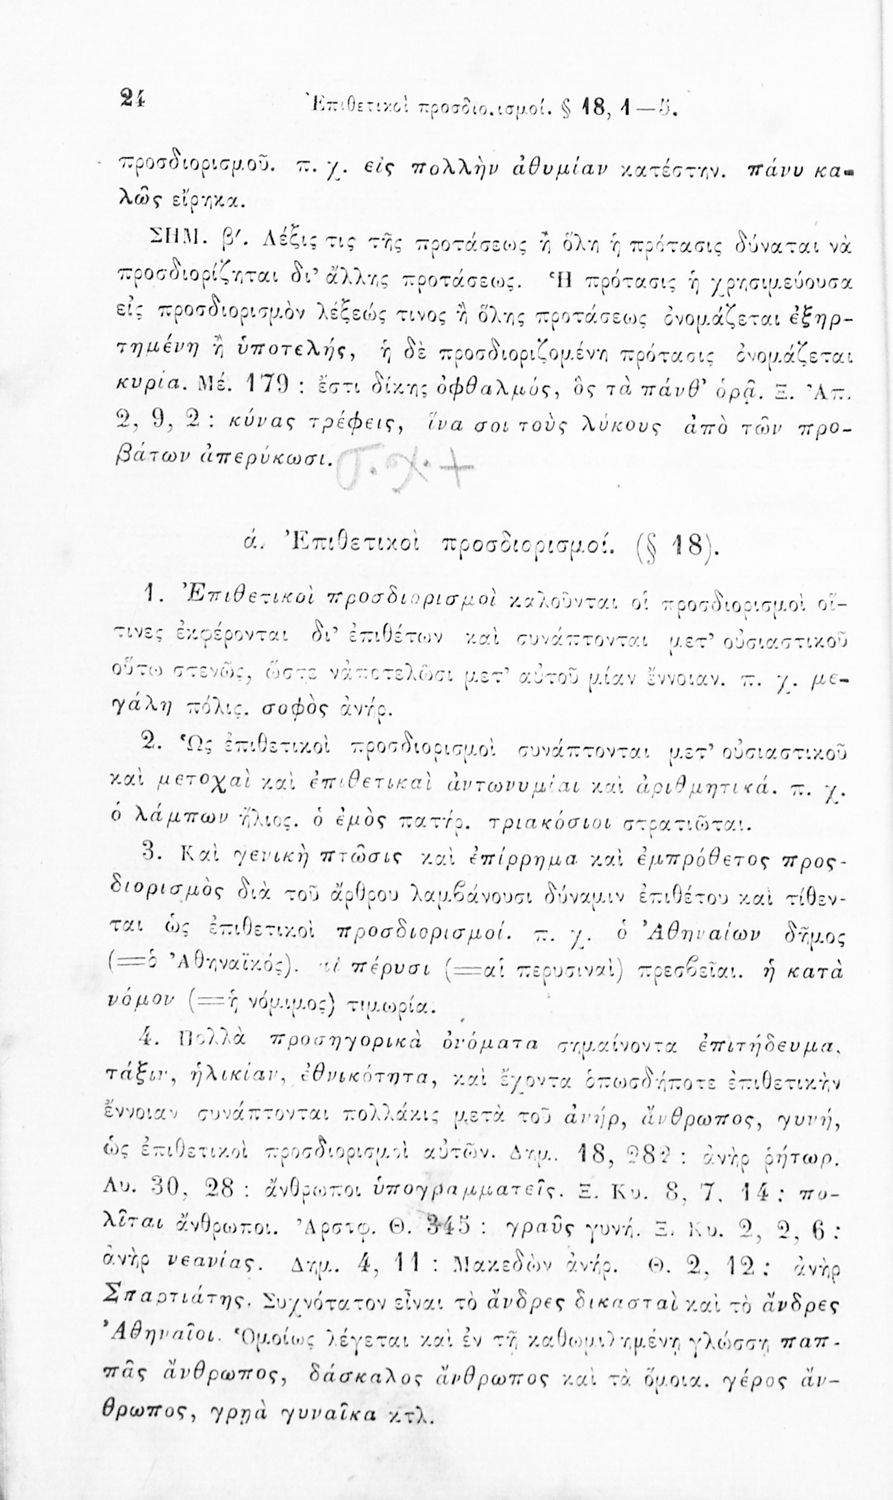 24 Ἐπιθετικοὶ προσδιορισμοί. § 18, 1—5.
προσδιορισμοῦ. π. χ. εἰς πολλὴν ἀθυμίαν κατέστην. πάνυ κα-
λῶς εἴρηκα.
ΣΗΜ. β′. Λέξις τις τῆς προτάσεως ἢ ὅλη ἡ πρότασις δύναται νὰ
προσδιορίζηται δι’ ἄλλης προτάσεως. Ἡ πρότασις ἡ χρησιμεύουσα
εἰς προσδιορισμὸν λέξεώς τινος ἢ ὅλης προτάσεως ὀνομάζεται ἐξηρ-
τημένη ἢ ὑποτελής, ἡ δὲ προσδιοριζομένη πρότασις ὀνομάζεται
κυρία. Μέ. 179 : ἔστι δίκης ὀφθαλμός, ὃς τὰ πάνθ’ ὁρᾷ. Ξ. Ἀπ.
2, 9, 2 : κύνας τρέφεις, ἵνα σοι τοὺς λύκους ἀπὸ τῶν προ-
βάτων ἀπερύκωσι.
ά. Ἐπιθετικοὶ προσδιορισμοί. (§ 18).
1. Ἐπιθετικοὶ προσδιορισμοὶ καλοῦνται οἱ προσδιορισμοὶ οἵ-
τινες ἐκφέρονται δι’ ἐπιθέτων καὶ συνάπτονται μετ’ οὐσιαστικοῦ
οὕτω στενῶς, ὥστε νἀποτελῶσι μετ’ αὐτοῦ μίαν ἔννοιαν. π. χ. με-
γάλη πόλις. σοφὸς ἀνήρ.
2. Ὡς ἐπιθετικοὶ προσδιορισμοὶ συνάπτονται μετ’ οὐσιαστικοῦ
καὶ μετοχαὶ καὶ ἐπιθετικαὶ ἀντωνυμίαι καὶ ἀριθμητικά. π. χ.
ὁ λάμπων ἥλιος. ὁ ἐμὸς πατήρ. τριακόσιοι στρατιῶται.
3. Καὶ γενικὴ πτῶσις καὶ ἐπίρρημα καὶ ἐμπρόθετος προς-
διορισμὸς διὰ τοῦ ἄρθρου λαμβάνουσι δύναμιν ἐπιθέτου καὶ τίθεν-
ται ὡς ἐπιθετικοὶ προσδιορισμοί. π. χ. ὁ Ἀθηναίων δῆμος
(=ὁ Ἀθηναϊκός). αἱ πέρυσι (=αἱ περυσιναὶ) πρεσβεῖαι. ἡ κατὰ
νόμον (=ἡ νόμιμος) τιμωρία.
4. Πολλὰ προσηγορικὰ ὀνόματα σημαίνοντα ἐπιτήδευμα,
τάξιν, ἡλικίαν, ἐθνικότητα, καὶ ἔχοντα ὁπωσδήποτε ἐπιθετικὴν
ἔννοιαν συνάπτονται πολλάκις μετὰ τοῦ ἀνήρ, ἄνθρωπος, γυνή,
ὡς ἐπιθετικοὶ προσδιορισμοὶ αὐτῶν. Δημ. 18, 282 : ἀνὴρ ῥήτωρ.
Λυ. 30, 28 : ἄνθρωποι ὑπογραμματεῖς. Ξ. Κυ. 8, 7, 14 : πο-
λῖται ἄνθρωποι. Ἀρστφ. Θ. 345 : γραῦς γυνή. Ξ. Κυ. 2, 2, 6 :
ἀνὴρ νεανίας. Δημ. 4, 11 : Μακεδὼν ἀνήρ. Θ. 2, 12 : ἀνὴρ
Σπαρτιάτης. Συχνότατον εἶναι τὸ ἄνδρες δικασταὶ καὶ τὸ ἄνδρες
Ἀθηναῖοι. Ὁμοίως λέγεται καὶ ἐν τῇ καθωμιλημένῃ γλώσσῃ παπ-
πᾶς ἄνθρωπος, δάσκαλος ἄνθρωπος καὶ τὰ ὅμοια. γέρος ἄν-
θρωπος, γρῃὰ γυναῖκα κτλ.